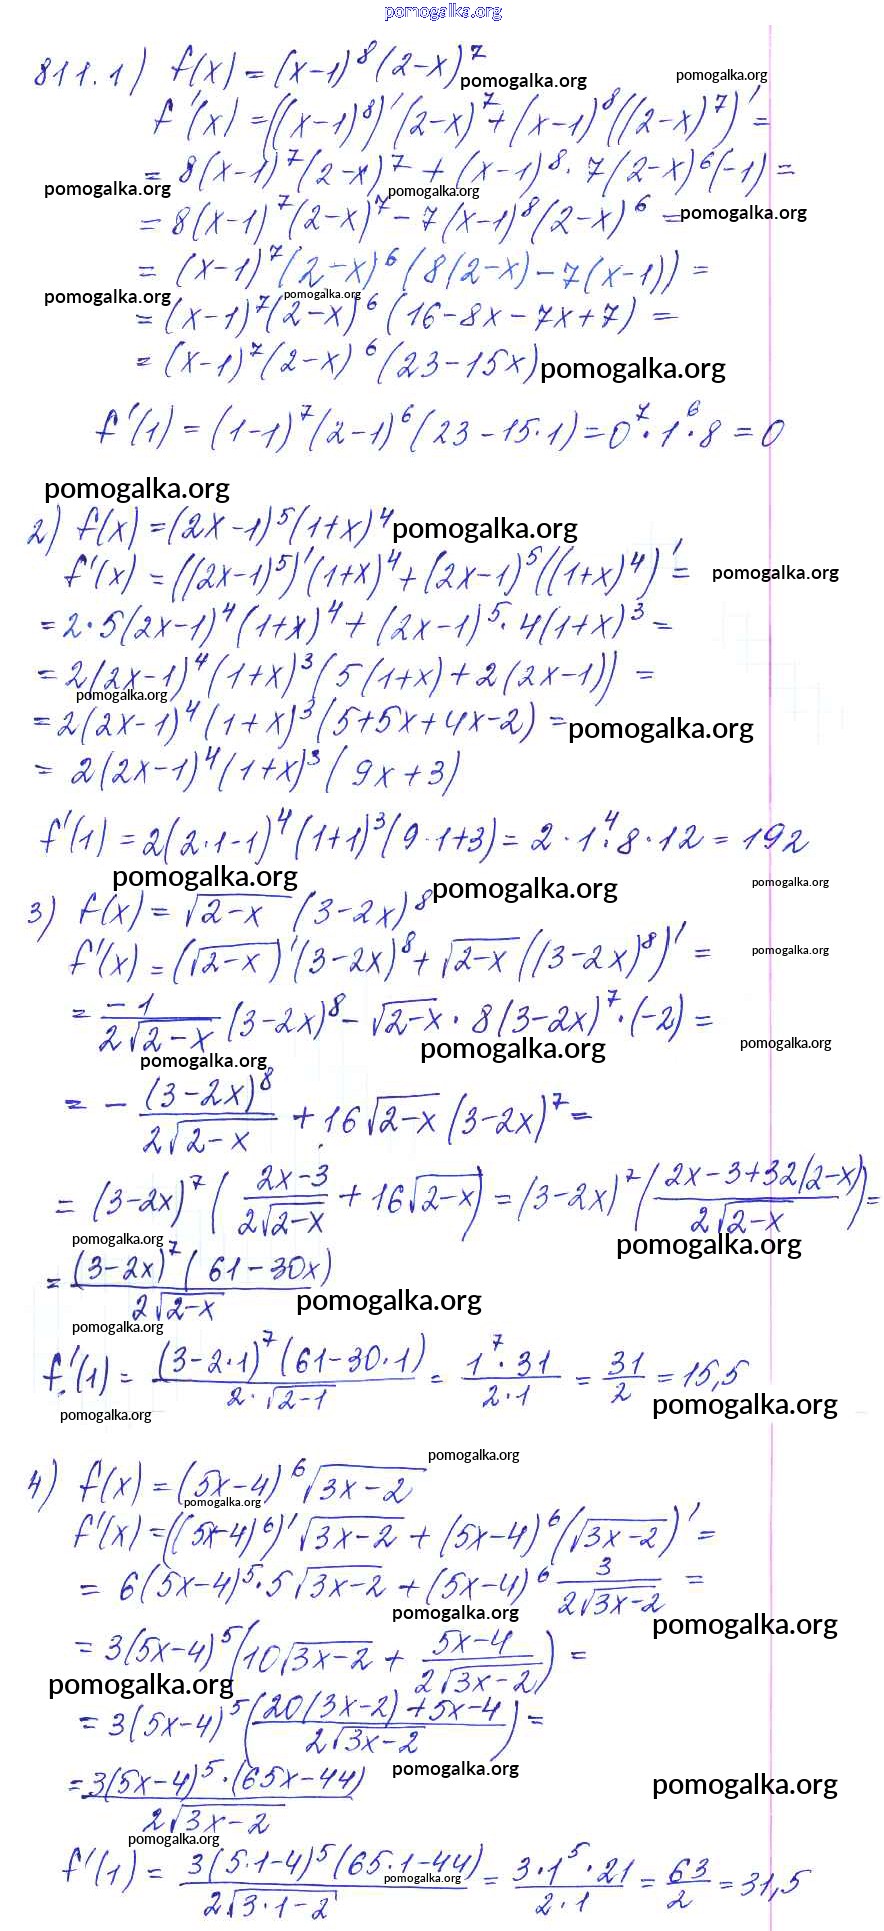 pomogalka.org
811. 1) f(x) = (x-1)^8 (2-x)^7
pomogalka.org pomogalka.org
f'(x) = ((x-1)^8)' (2-x)^7 + (x-1)^8 ((2-x)^7)' =
= 8(x-1)^7 (2-x)^7 + (x-1)^8 · 7(2-x)^6 (-1) =
pomogalka.org pomogalka.org
= 8(x-1)^7 (2-x)^7 - 7(x-1)^8 (2-x)^6 = pomogalka.org
= (x-1)^7 (2-x)^6 (8(2-x) - 7(x-1)) =
pomogalka.org pomogalka.org
= (x-1)^7 (2-x)^6 (16-8x-7x+7) =
= (x-1)^7 (2-x)^6 (23-15x) pomogalka.org
f'(1) = (1-1)^7 (2-1)^6 (23-15·1) = 0^7 · 1^6 · 8 = 0
pomogalka.org
2) f(x) = (2x-1)^5 (1+x)^4 pomogalka.org
f'(x) = ((2x-1)^5)' (1+x)^4 + (2x-1)^5 ((1+x)^4)' = pomogalka.org
= 2·5(2x-1)^4 (1+x)^4 + (2x-1)^5 · 4(1+x)^3 =
= 2(2x-1)^4 (1+x)^3 (5(1+x) + 2(2x-1)) =
pomogalka.org
= 2(2x-1)^4 (1+x)^3 (5+5x+4x-2) = pomogalka.org
= 2(2x-1)^4 (1+x)^3 (9x+3)
f'(1) = 2(2·1-1)^4 (1+1)^3 (9·1+3) = 2·1^4·8·12 = 192
pomogalka.org pomogalka.org pomogalka.org
3) f(x) = √(2-x) (3-2x)^8
f'(x) = (√(2-x))' (3-2x)^8 + √(2-x) ((3-2x)^8)' = pomogalka.org
= -1/(2√(2-x)) (3-2x)^8 - √(2-x) · 8(3-2x)^7 · (-2) =
pomogalka.org pomogalka.org pomogalka.org
= - (3-2x)^8/(2√(2-x)) + 16√(2-x) (3-2x)^7 =
= (3-2x)^7 ((2x-3)/(2√(2-x)) + 16√(2-x)) = (3-2x)^7 ((2x-3+32(2-x))/(2√(2-x))) =
pomogalka.org pomogalka.org
= (3-2x)^7 (61-30x)/(2√(2-x)) pomogalka.org
pomogalka.org
f'(1) = (3-2·1)^7 (61-30·1)/(2·√(2-1)) = 1^7·31/(2·1) = 31/2 = 15,5
pomogalka.org pomogalka.org
pomogalka.org
4) f(x) = (5x-4)^6 √(3x-2)
pomogalka.org
f'(x) = ((5x-4)^6)' √(3x-2) + (5x-4)^6 (√(3x-2))' =
= 6(5x-4)^5 · 5√(3x-2) + (5x-4)^6 3/(2√(3x-2)) =
pomogalka.org pomogalka.org
= 3(5x-4)^5 (10√(3x-2) + (5x-4)/(2√(3x-2))) =
pomogalka.org
= 3(5x-4)^5 ((20(3x-2)+5x-4)/(2√(3x-2))) =
pomogalka.org pomogalka.org
= 3(5x-4)^5 · (65x-44)/(2√(3x-2))
pomogalka.org
f'(1) = 3(5·1-4)^5 (65·1-44)/(2√(3·1-2)) = 3·1^5·21/(2·1) = 63/2 = 31,5
pomogalka.org